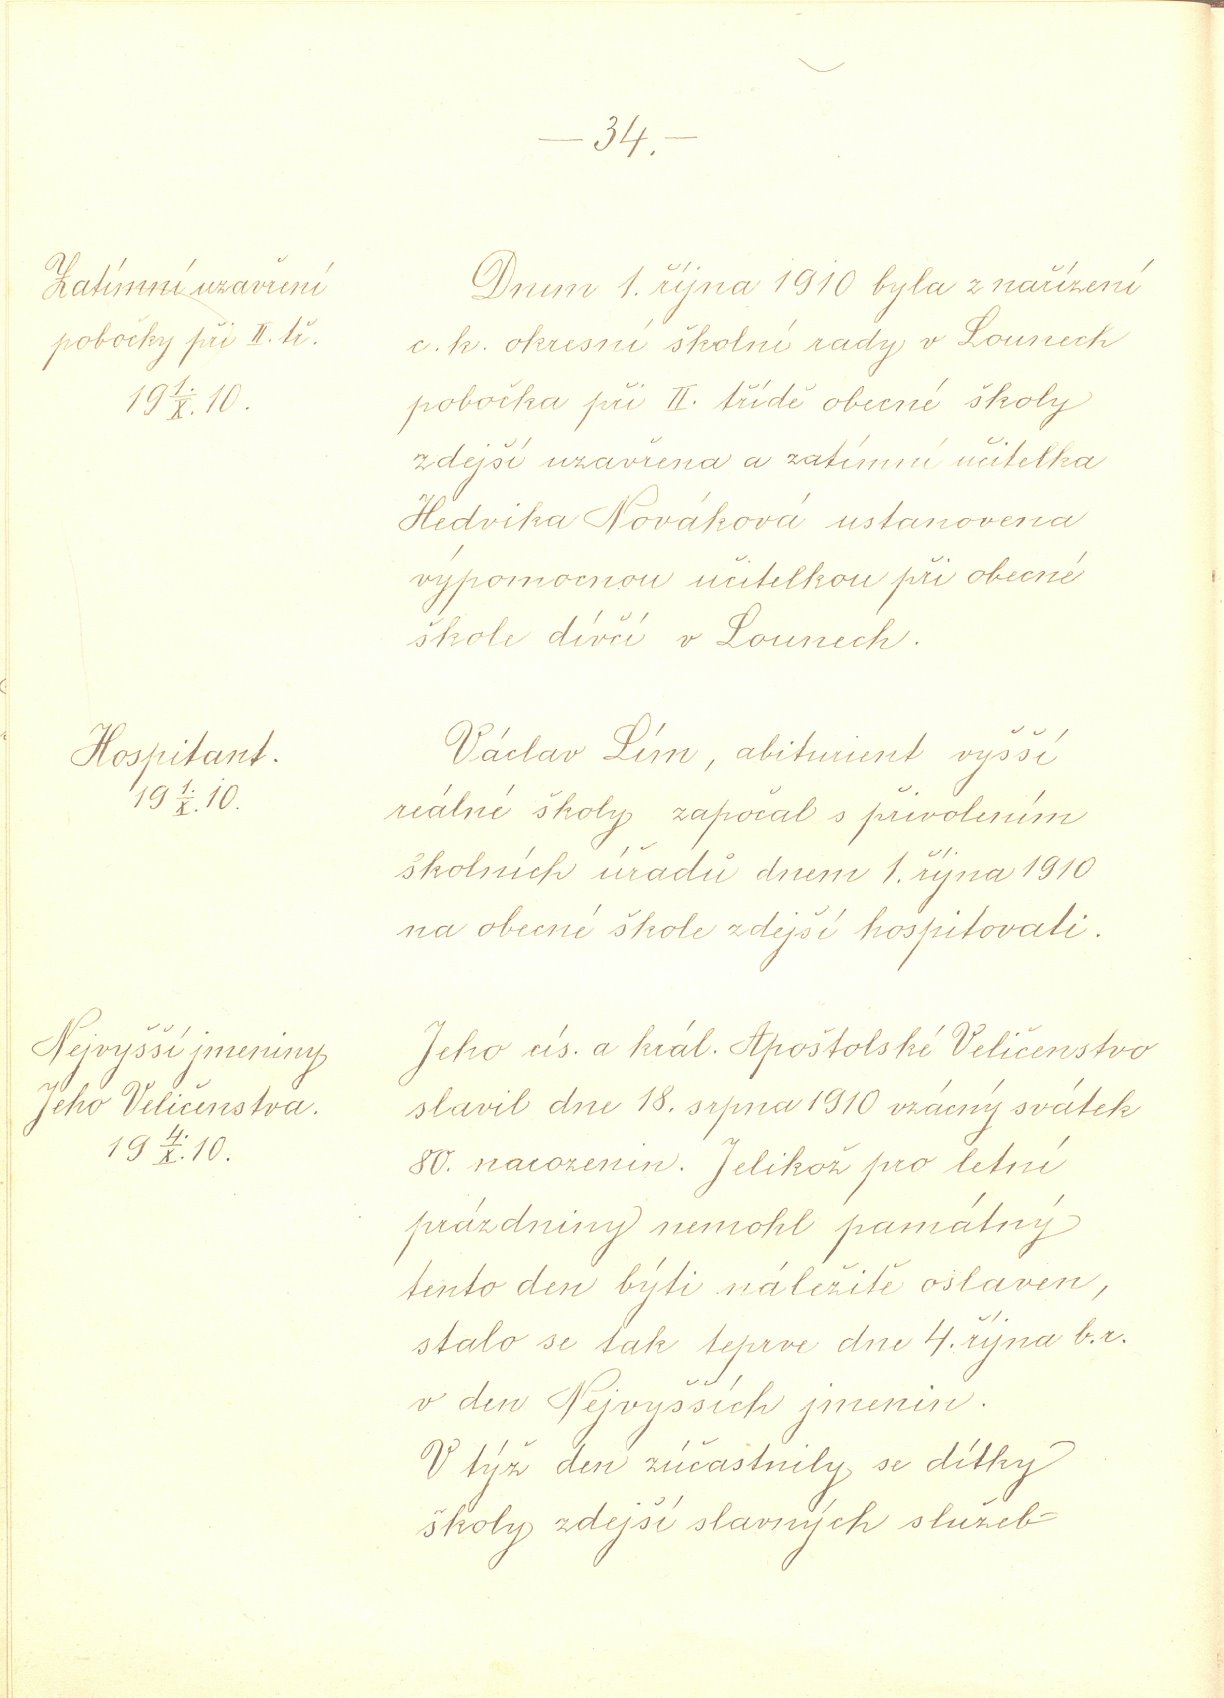 — 34. —
Zatímní uzavření
pobočky při II. tř.
19 1./X. 10.
Dnem 1. října 1910 byla z nařízení
c. k. okresní školní rady v Lounech
pobočka při II. třídě obecné školy
zdejší uzavřena a zatímní učitelka
Hedvika Nováková ustanovena
výpomocnou učitelkou při obecné
škole dívčí v Lounech.
Hospitant.
19 1./X. 10.
Václav Lím, abiturient vyšší
reálné školy započal s přivolením
školních úřadů dnem 1. října 1910
na obecné škole zdejší hospitovati.
Nejvyšší jmeniny
Jeho Veličenstva.
19 4./X. 10.
Jeho cís. a král. Apoštolské Veličenstvo
slavil dne 18. srpna 1910 vzácný svátek
80. narozenin. Jelikož pro letní
prázdniny nemohl památný
tento den býti náležitě oslaven,
stalo se tak teprve dne 4. října b. r.
v den Nejvyšších jmenin.
V týž den zúčastnily se dítky
školy zdejší slavných služeb=